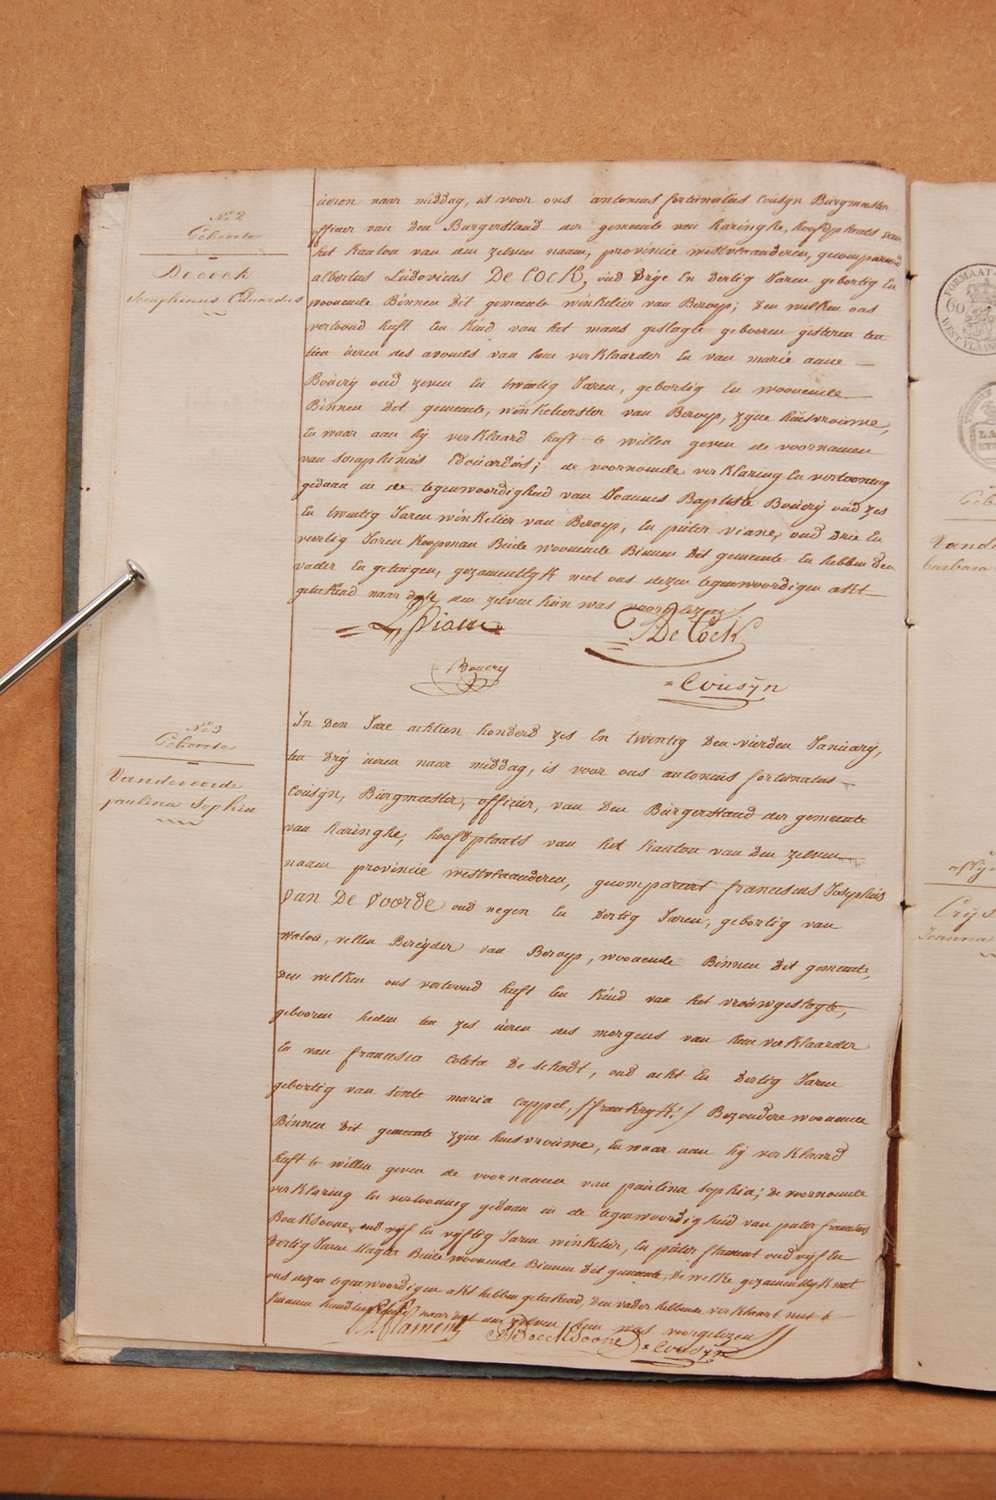 N.º 2
Geboorte
Decock
Seraphinus Eduardus
uren naar middag, is voor ons antonius fortunatus Cousyn Burgmeester
officier van den Burgerstand der gemeente van haringhe, hoofdplaats van
het kanton van den zelven naam, provincie westvlaanderen, gecompareerd
albertus Ludovicus De Cock, oud drije en dertig Jaren gebortig en
woonende Binnen dit gemeente winkelier van Beroep; den welken ons
vertoond heeft een kind van het mans geslagte gebooren gisteren ten
tien uren des avonds van hem verklaarder en van marie anne
Bouerij oud zeven en twentig Jaren, gebortig en woonende
Binnen dit gemeente, winkelierster van Beroep, zyne huisvrouwe,
en waar aan hij verklaard heeft te willen geven de voornamen
van seraphinus Edouardus; de voornoemde verklaring en vertooning
gedaan in de tegenwoordigheid van Joannes Baptiste Bouerij oud zes
en twentig Jaren winkelier van Beroep, en pieter viane, oud drie en
veertig Jaren koopman Beide woonende Binnen dit gemeente en hebben den
vader en getuigen, gezamentlyk met ons dezen tegenwoordigen akt
geteekend naar dat den zelven hun was voorgelezen
P Viane
De Cock
Bouery
Cousyn
N.º 3
Geboorte
Vandevoorde
paulina Sophia
In den Jare achtien honderd zes en twentig den vierden January,
ten drij uren naar middag, is voor ons antonius fortunatus
Cousyn, Burgmeester, officier, van den Burgerstand der gemeente
van haringhe, hoofdplaats van het kanton van den zelven
naam provincie westvlaanderen, gecompareert franciscus Josephus
Van De Voorde oud negen en dertig Jaren, gebortig van
watou, vellen Bereyder van Beroep, woonende Binnen dit gemeente,
den welken ons vertoond heeft een kind van het vrouwgeslagte,
gebooren heden ten zes uren des morgens van hem verklaarder
en van francisca Coleta De schodt, oud acht en dertig Jaren
gebortig van sinte maria Cappel, /frankryk:/ Bezondere woonende
Binnen dit gemeente zyne huisvrouwe, en waar aan hij verklaard
heeft te willen geven de voornaamen van paulina sophia; de voornoemde
verklaring en vertooning gedaan in de tegenwoordigheid van pieter francies
Bouksoone, oud vijf en vijftig Jaren winkelier, en pieter flament oud vijf en
dertig Jaren slager Beide woonende Binnen dit gemeente, de welke gezamentlyk met
ons dezen tegenwoordigen akt hebben geteekend, den vader hebbende verklaart niet te
kunnen naar dat den zelven hun was voorgelezen
Flament
Boucksoone
Cousyn
FORMAAT
60
WEST VLAAN
Vande
barbara
Crys
Joanna